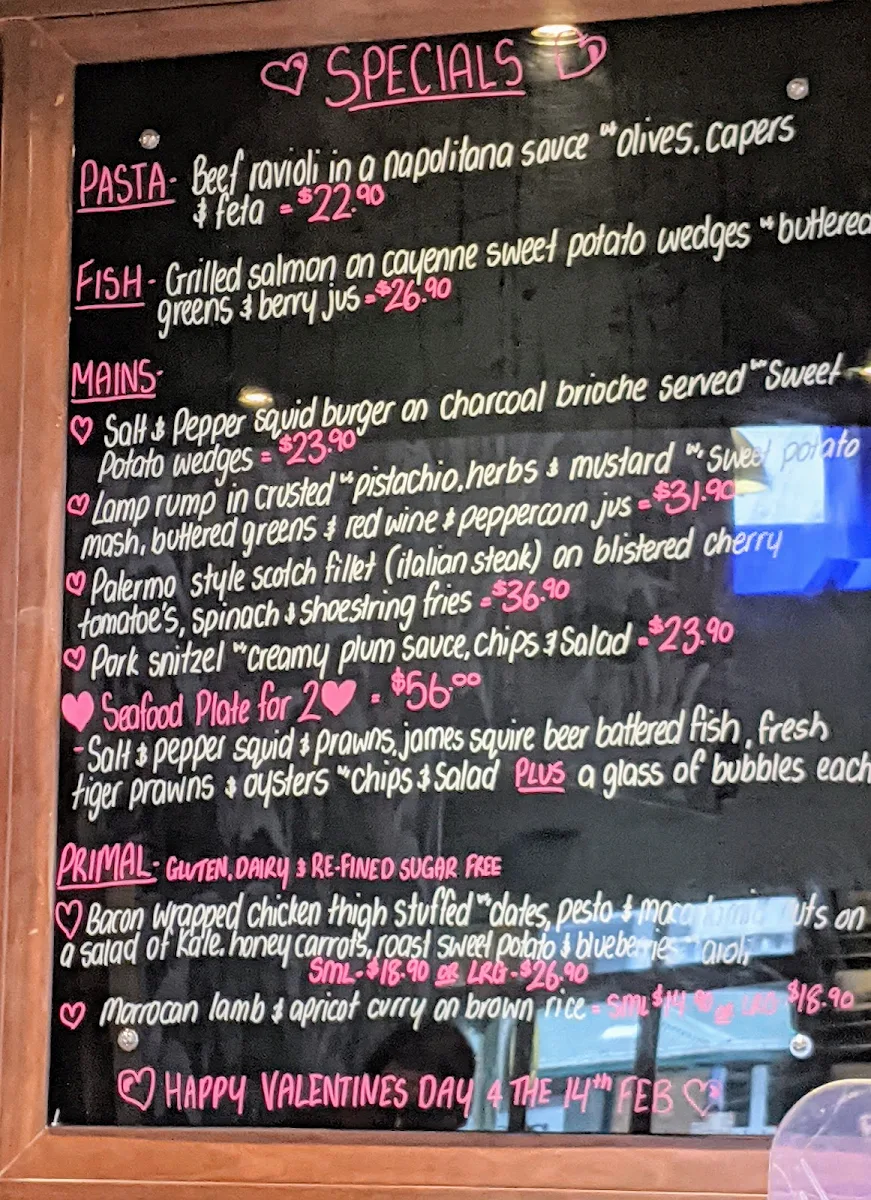 SPECIALS
PASTA- Beef ravioli in a napolitana sauce w olives, capers
& feta = $22.90
FISH- Grilled salmon on cayenne sweet potato wedges w buttered
greens & berry jus = $26.90
MAINS-
Salt & Pepper squid burger on charcoal brioche served w Sweet
Potato wedges = $23.90
Lamp rump in crusted w pistachio, herbs & mustard w sweet potato
mash, buttered greens & red wine & peppercorn jus = $31.90
Palermo style scotch fillet (italian steak) on blistered cherry
tomatoe's, spinach & shoestring fries = $36.90
Pork snitzel w creamy plum sauce, chips & Salad = $23.90
Seafood Plate for 2 = $56.00
- Salt & pepper squid & prawns, james squire beer battered fish, fresh
tiger prawns & oysters w chips & Salad PLUS a glass of bubbles each
PRIMAL- GLUTEN, DAIRY & RE-FINED SUGAR FREE
Bacon wrapped chicken thigh stuffed w dates, pesto & nuts on
a salad of kale, honey carrots, roast sweet potato & blueberries w aioli
SML-$18.90 OR LRG-$26.90
Morrocan lamb & apricot curry on brown rice = SML $14.90 OR LRG $18.90
HAPPY VALENTINES DAY 4 THE 14th FEB